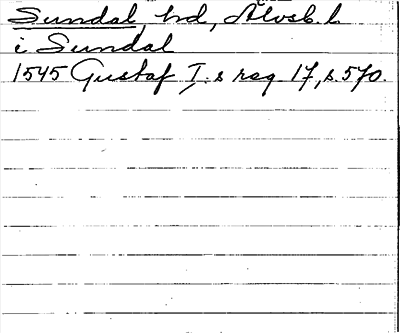 Sundal hd, Älvsb. l.
i Sundal
1545 Gustaf I:s reg. 17, s. 570.